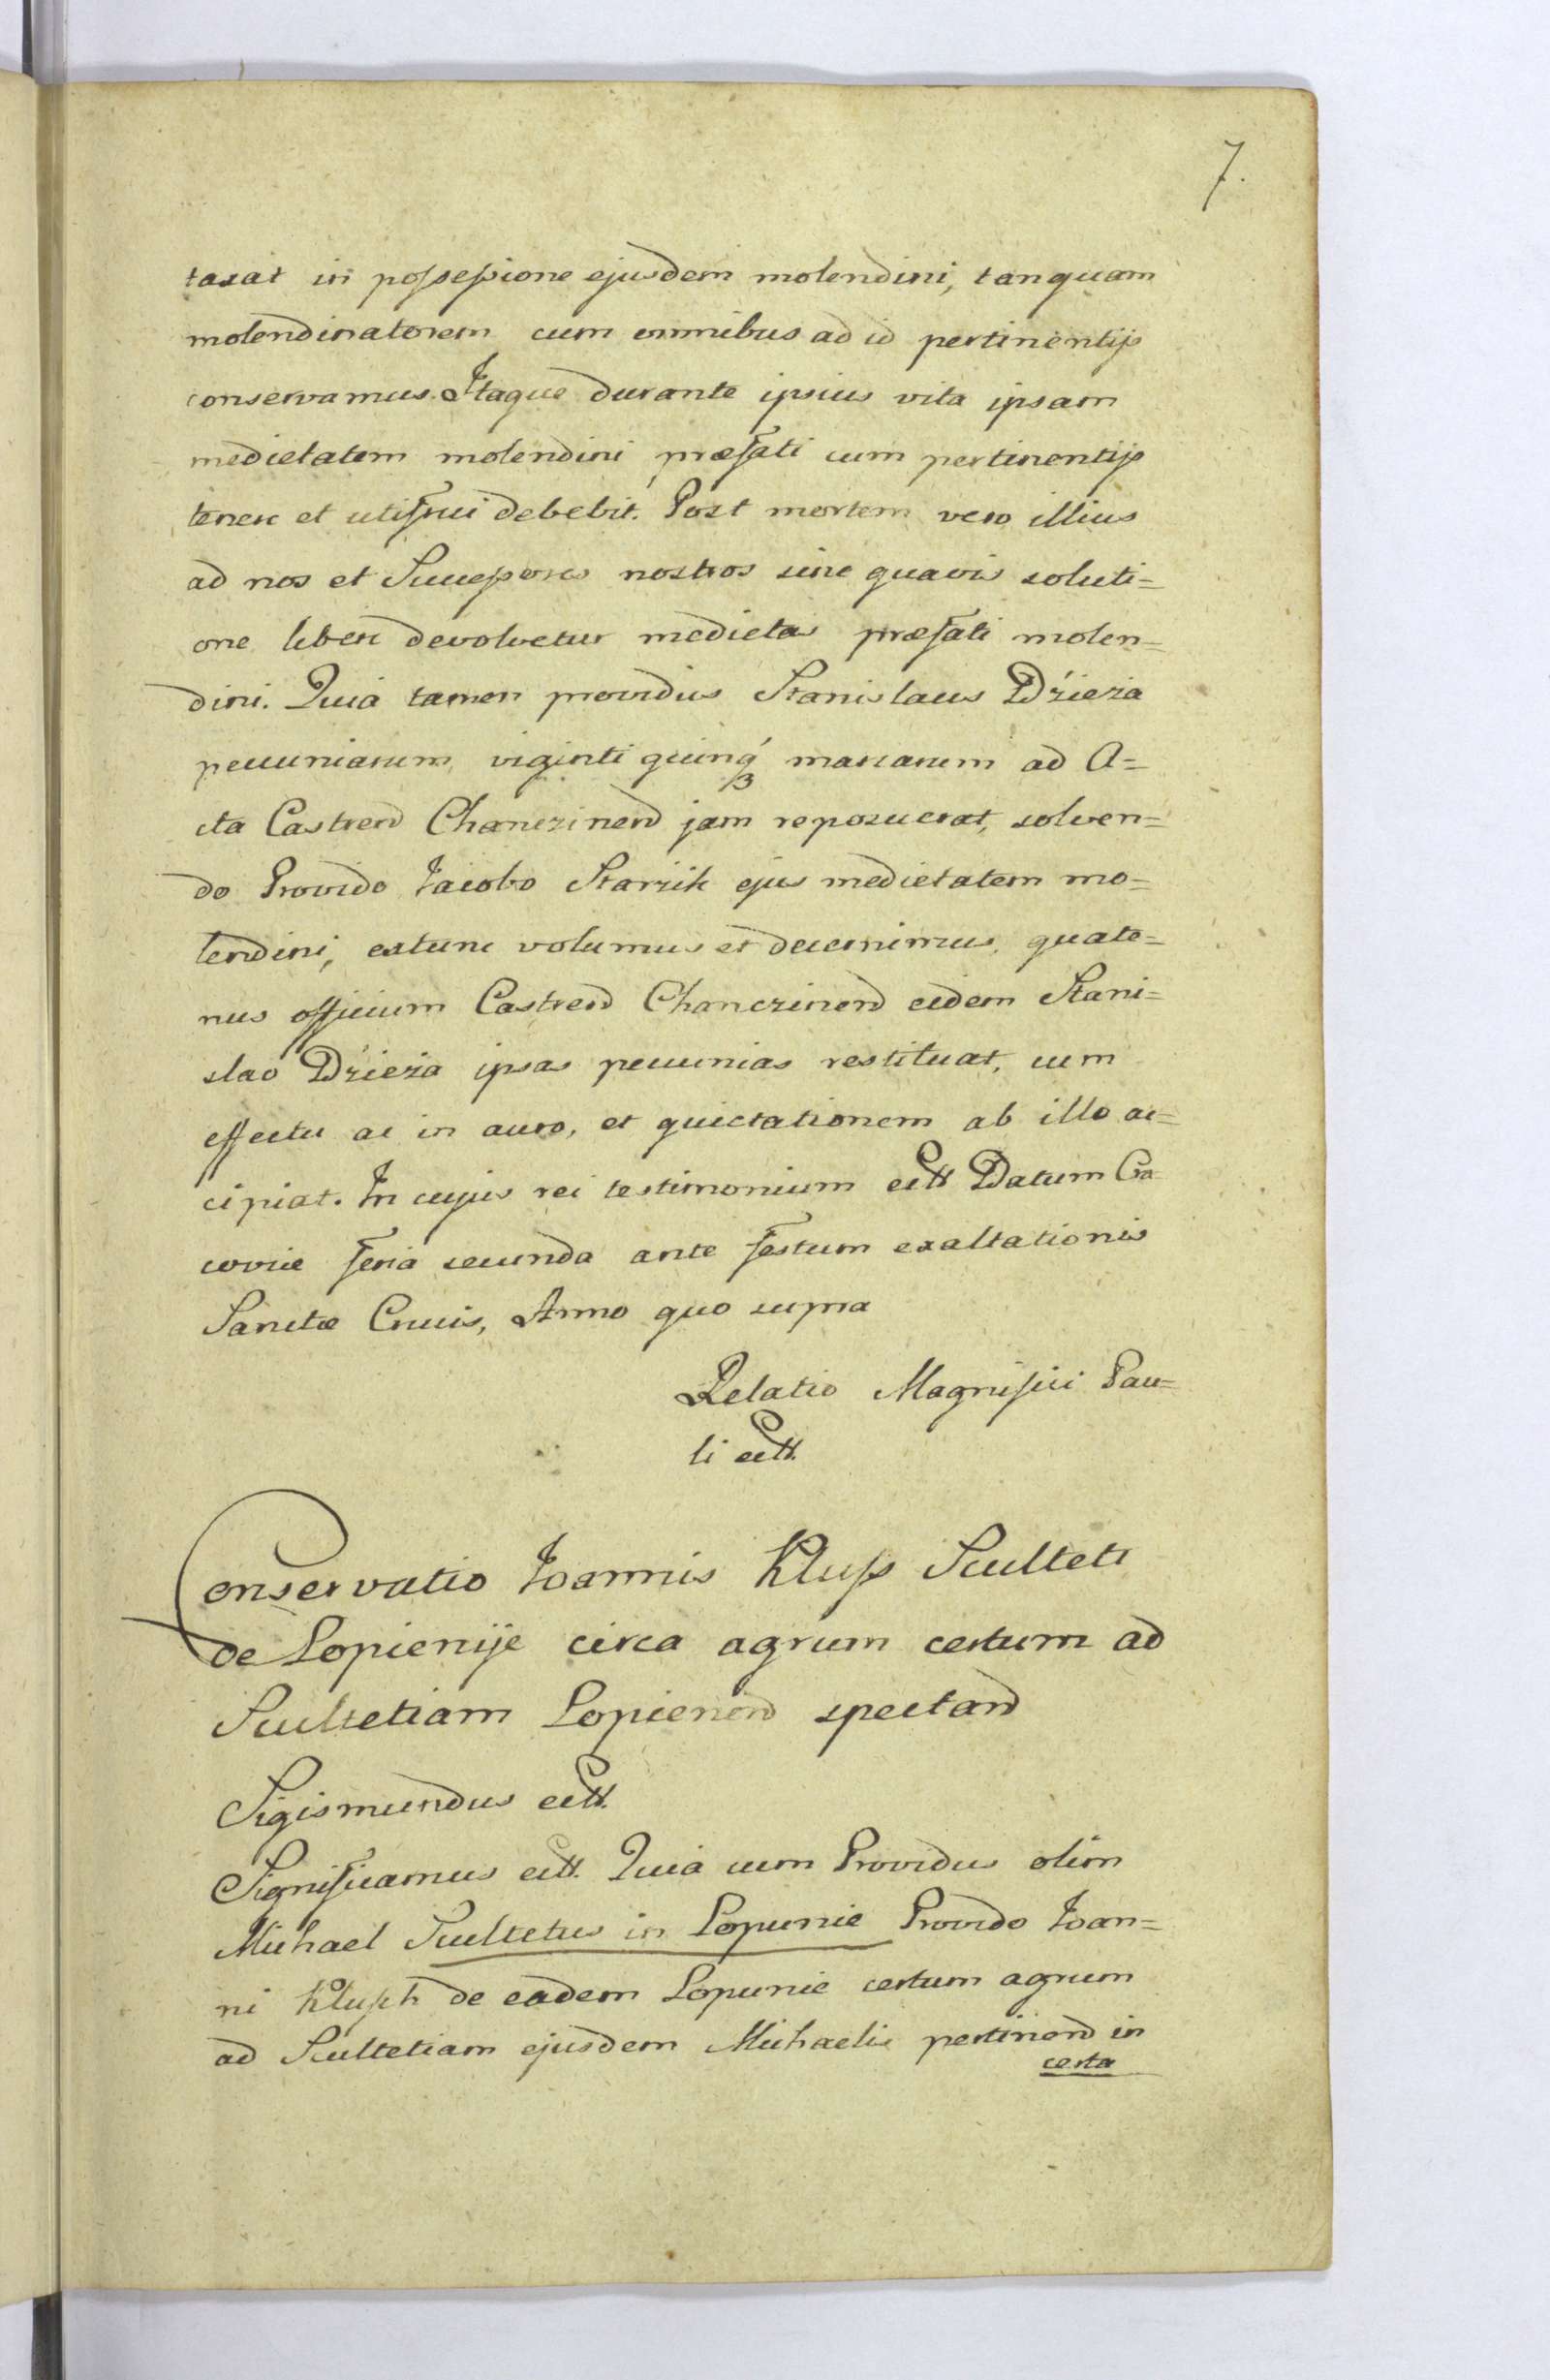 7.
taxat in possessione ejusdem molendini, tanquam
molendinatorem cum omnibus ad id pertinentijs
conservamus. Itaque durante ipsius vita ipsam
medietatem molendini præfati cum pertinentijs
tenere et utifrui debebit. Post mortem vero illius
ad nos et Successores nostros sine quavis soluti=
one libere devolvetur medietas præfati molen=
dini. Quia tamen providus Stanislaus Dzieża
pecuniarum viginti quinq́ȝ marcarum ad A=
cta Castren̄ Chęnczinen̄ jam reposuerat, solven=
do Provido Jacobo Starzik ejus medietatem mo=
lendini, extunc volumus et decernimus, quate=
nus officium Castren̄ Chanczinen̄ eidem Stani=
slao Dzieża ipsas pecunias restituat, cum
effectu ac in auro, et quietationem ab illo ac=
cipiat. In cujus rei testimonium ett Datum Cra
coviæ feria secunda ante festum exaltationis
Sanctæ Crucis, Anno quo supra
Relatio Magnifici Pau=
li ett.
Conservatio Joannis Kluss Sculteti
de Lopienije circa agrum certum ad
Scultetiam Lopienen̄ spectan̄
Sigismundus ett.
Significamus ett. Quia cum Providus olim
Michael Scultetus in Lopunie Provido Joan=
ni Klusch de eadem Lopunie certum agrum
ad Scultetiam ejusdem Michaelis pertinen̄ in
certa